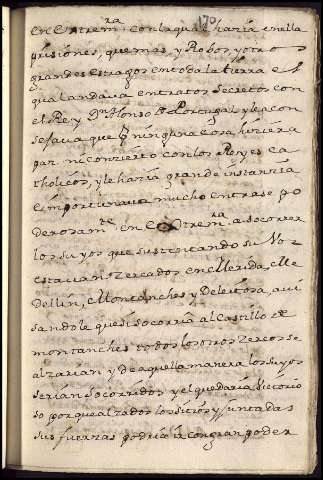 170
en Extrem.ra con la qual hazia en ella
prisiones, quemas, y Robos, y otros
grandes estragos en toda la tierra el
qual andava en tratos secretos con
el Rey Dn. Alonso de Portugal y le acon
sejava que ninguna cosa hiziera
paz ni conzierto con los Reyes Ca
tholicos, y le hazia grande instanzia
e importunava mucho entrase po
derosam.te en Extrem.ra a socorrer
los suyos que sustentando su Voz
estavan zercados en Merida, Me
dellin, e Montanches y Deleitosa, avi
sandole que si socorria al Castillo de
montanches todos los otros zercos se
alzarian, y de aquella manera los suyos
serian socorridos y el quedaria Victorio
so porque alzados los sitios y juntadas
sus fuerzas podria ir con gran poder